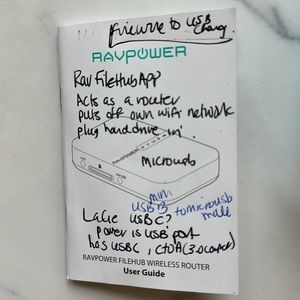 firewire to USB
RAVPOWER
Rav FileHubApp
Acts as a router
puts off own wifi network
plug hard drive in
RAVPOWER
microusb
mini
USB 3 to microusb
male
LaCie USBC?
power is USB port
has USBC, CtoA
RAVPOWER FILEHUB WIRELESS ROUTER
User Guide